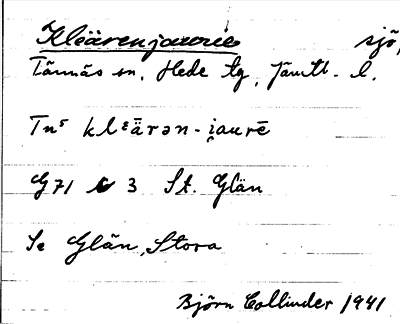 Kleärenjaurie sjö,
Tännäs sn, Hede tg, Jämtl. l.
Tnˢ klᵋärən-i̯aurē
G71 3 St. Glän
Se Glän, Stora
Björn Collinder 1941